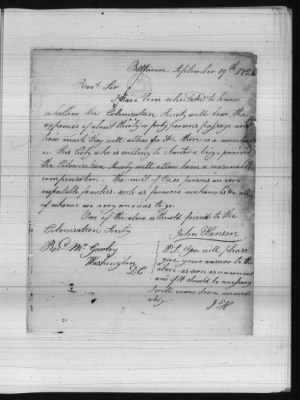 Baltimore September 19th
Revd. Sir
I have been solicited to know
whether the Colonization Society will bear the
expences of about thirty or forty persons passage and
how much they will allow for it. there is a merchant
in this City who is willing to charter a large
the Colonization Society will allow him a reasonable
compensation. the most of these persons are very
respectable families, such as farmers mechanics &c all
of whom are very anxious to go.
One of the above is
Colonization Society
John Hanson
Revd. Mr Gurley
Washington
DC
P.S. you will please
give your answer to the
above as soon as convenient
and if it should be
I will
J H